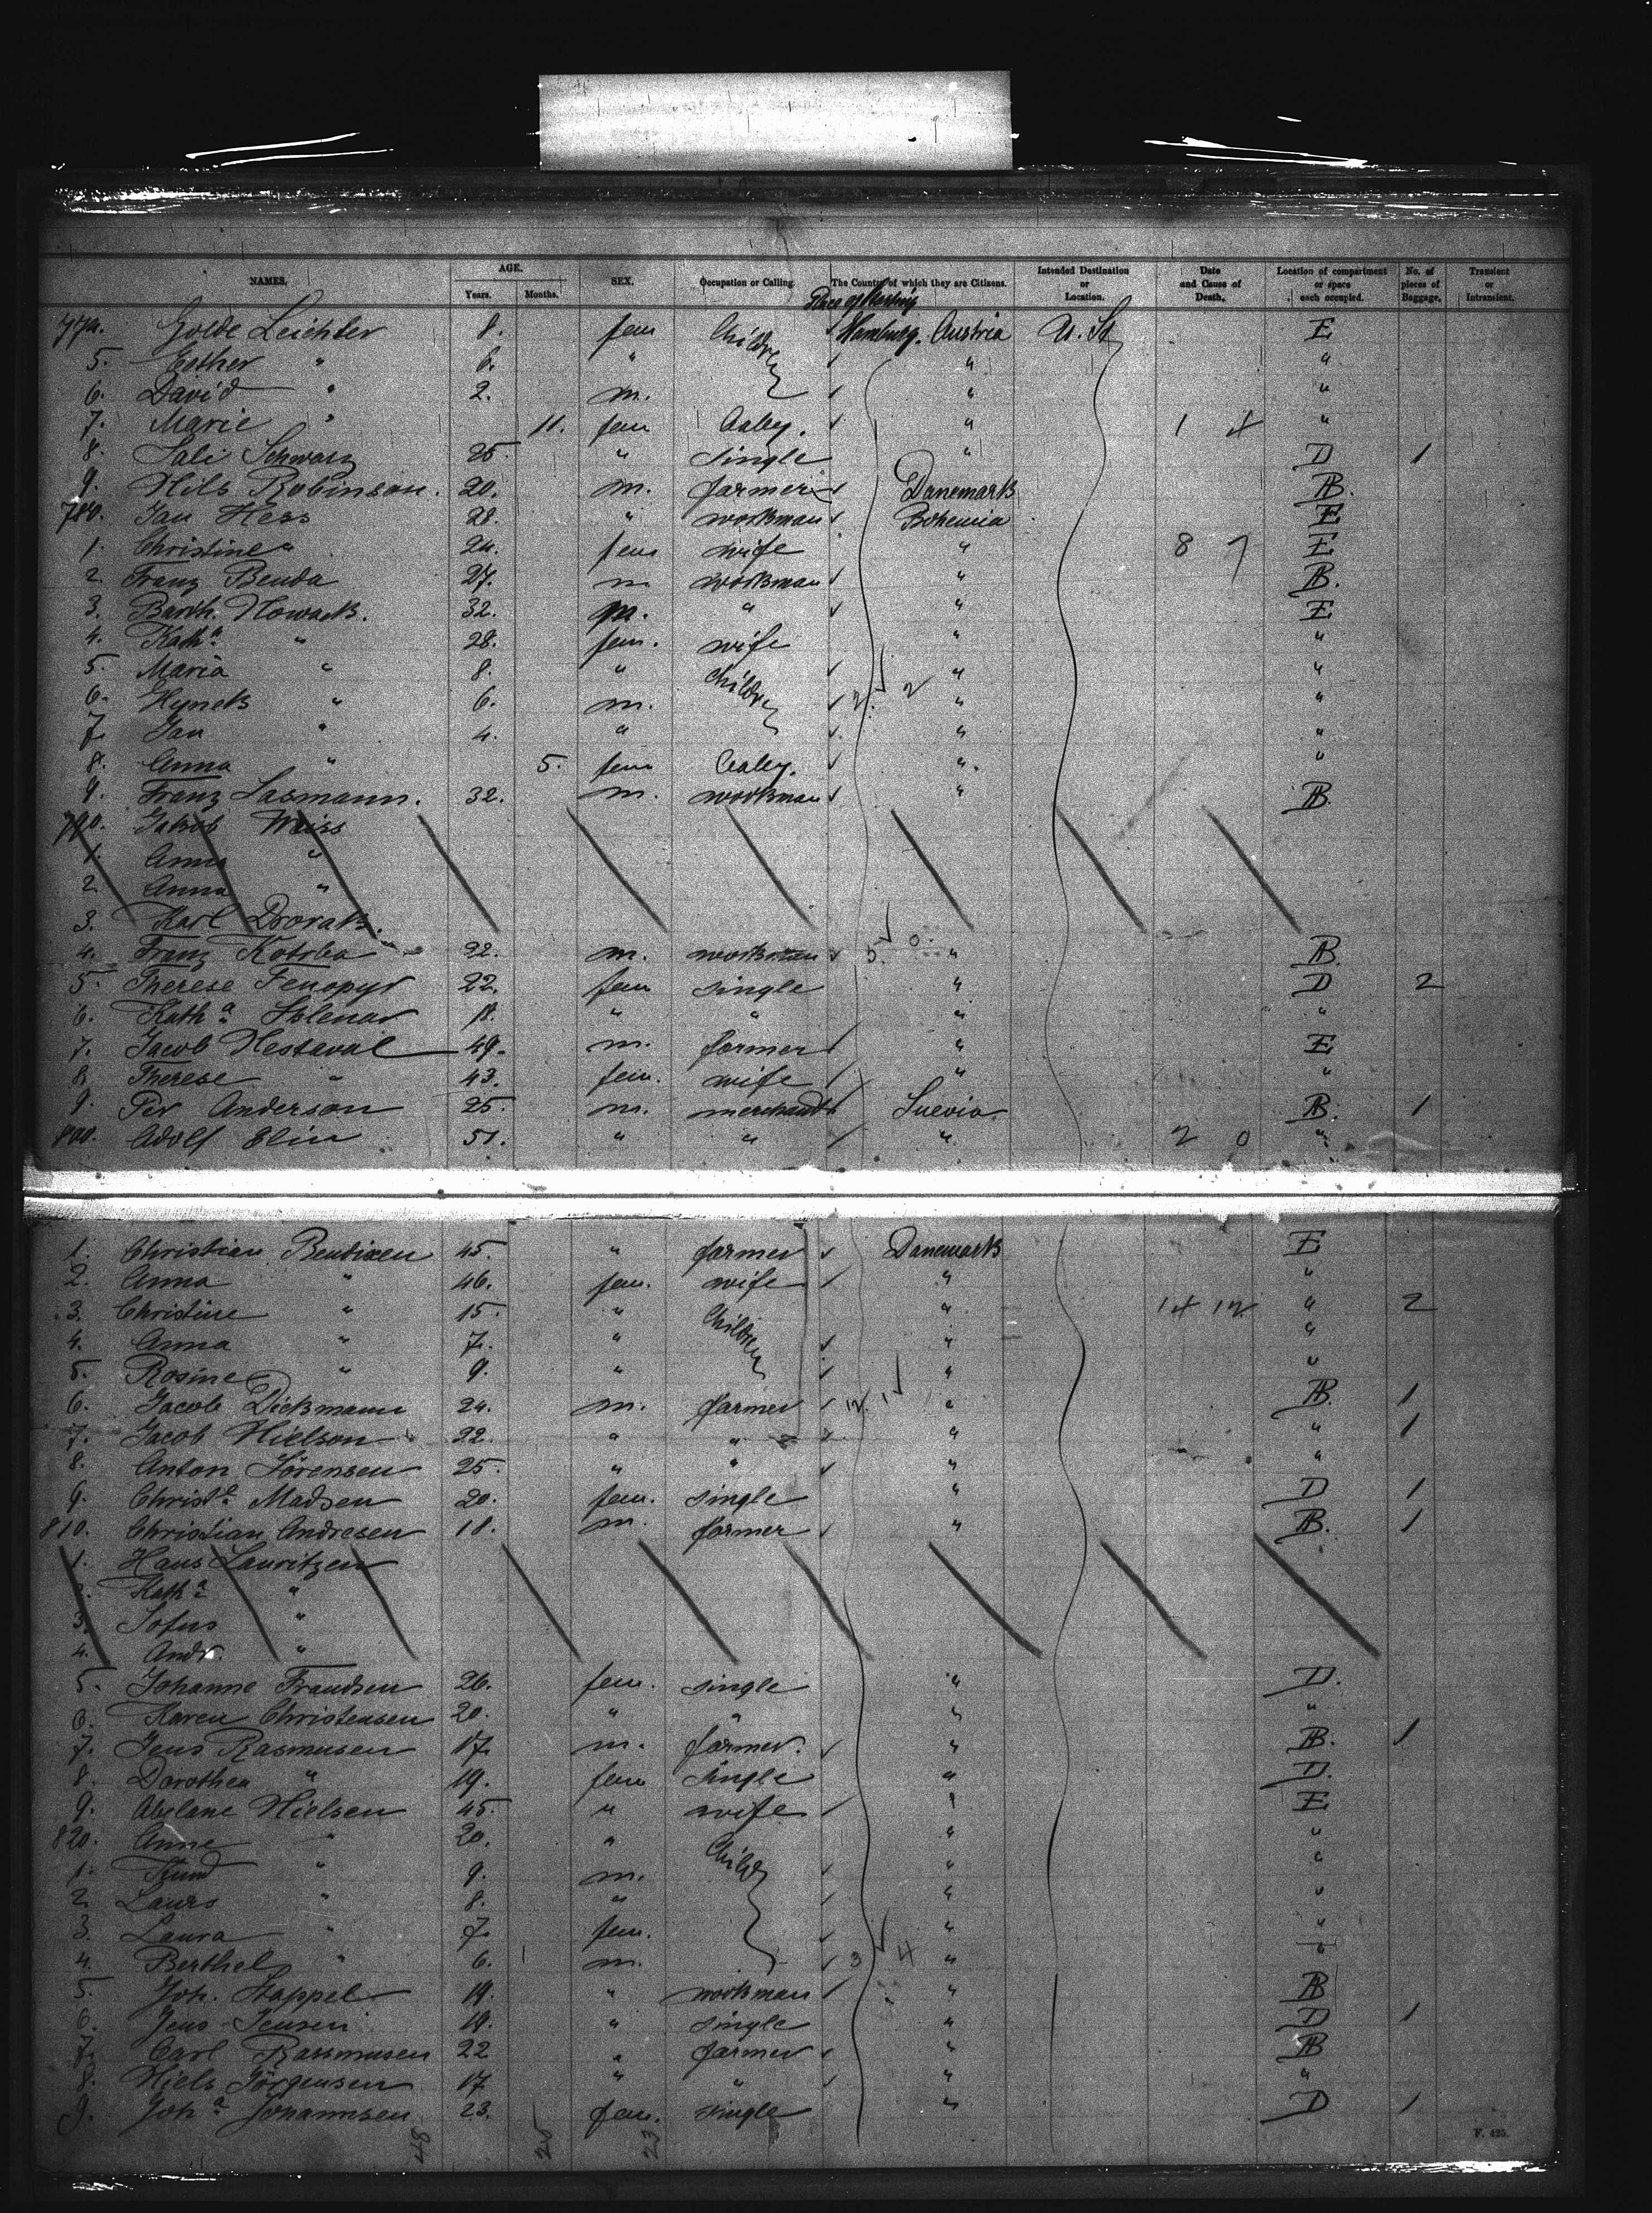 NAMES. AGE. Years. Months. SEX. Occupation or Calling. The Country of which they are Citizens. Intended Destination or Location. Date and Cause of Death. Location of compartment or space each occupied. No. of pieces of Baggage. Transient or Intransient.
Place of Starting
774. Golde Leichter 8. fem Children Hamburg. Austria U. St E
5. Esther " 6. " " "
6. David " 2. m. " "
7. Marie " 11. fem baby. " 1 4 "
8. Sali Schwarz 25. " single " D 1
9. Nils Robinson. 20. m. farmer Danemark AB.
780. Jan Hess 28. " workman Bohemia E
1. Christine " 24. fem wife " 8 7 E
2. Franz Benda 27. m workman " AB.
3. Barth. Nowack. 32. m. " " E
4. Kath.a " 28. fem. wife " "
5. Maria " 8. " Children " "
6. Hynek " 6. m. 2. 2 " "
7. Jan " 4. " " "
8. Anna " 5. fem baby. " "
9. Franz Lasmann. 32. m. workman " AB.
790. Jakob Weiss
1. Anna "
2. Anna "
3. Karl Dvorak.
4. Franz Kotrba 22. m. workman 5. 0. " AB.
5. Therese 22. fem single " D 2
6. Kath.a 18. " " " "
7. Jacob 49. m. farmer " E
8. Therese " 43. fem. wife " "
9. Per Anderson 25. m. merchant Suevia AB. 1
800. Adolf Elin 51. " " " 2 0 "
1. Christian Bendixen 45. " farmer Danemark E
2. Anna " 46. fem. wife " "
3. Christine " 15. " Children " 14 12 " 2
4. Anna " 7. " " "
5. Rosine " 9. " " "
6. Jacob Dickmann 24. m. farmer 12. 1 " AB. 1
7. Jacob Nielson 22. " " " " 1
8. Anton Sörensen 25. " " " "
9. Christ.e Madsen 20. fem. single " D 1
810. Christian Andresen 18. m. farmer " AB. 1
1. Hans Lauritzen
2. Kath.a "
3. Sofus "
4. Andr. "
5. Johanne Frandsen 26. fem. single " D.
6. Karen Christensen 20. " " " "
7. Jens Rasmusen 17. m. farmer. " AB. 1
8. Dorothea " 19. fem single " D.
9. Abelane Nielsen 45. " wife " E
820. Anne " 20. " Childr " "
1. Knud " 9. m. " "
2. Laurs " 8. " " "
3. Laura " 7. fem. " "
4. Berthel " 6. m. 3 4 " "
5. Joh. Kappel 19. " workman " AB
6. Jens Jensen 19. " single " D 1
7. Carl Rassmusen 22 " farmer " AB
8. Niels Jörgensen 17 " " " "
9. Joh.a Johannsen 23. fem. single " D 1
48 25 23
F. 425.